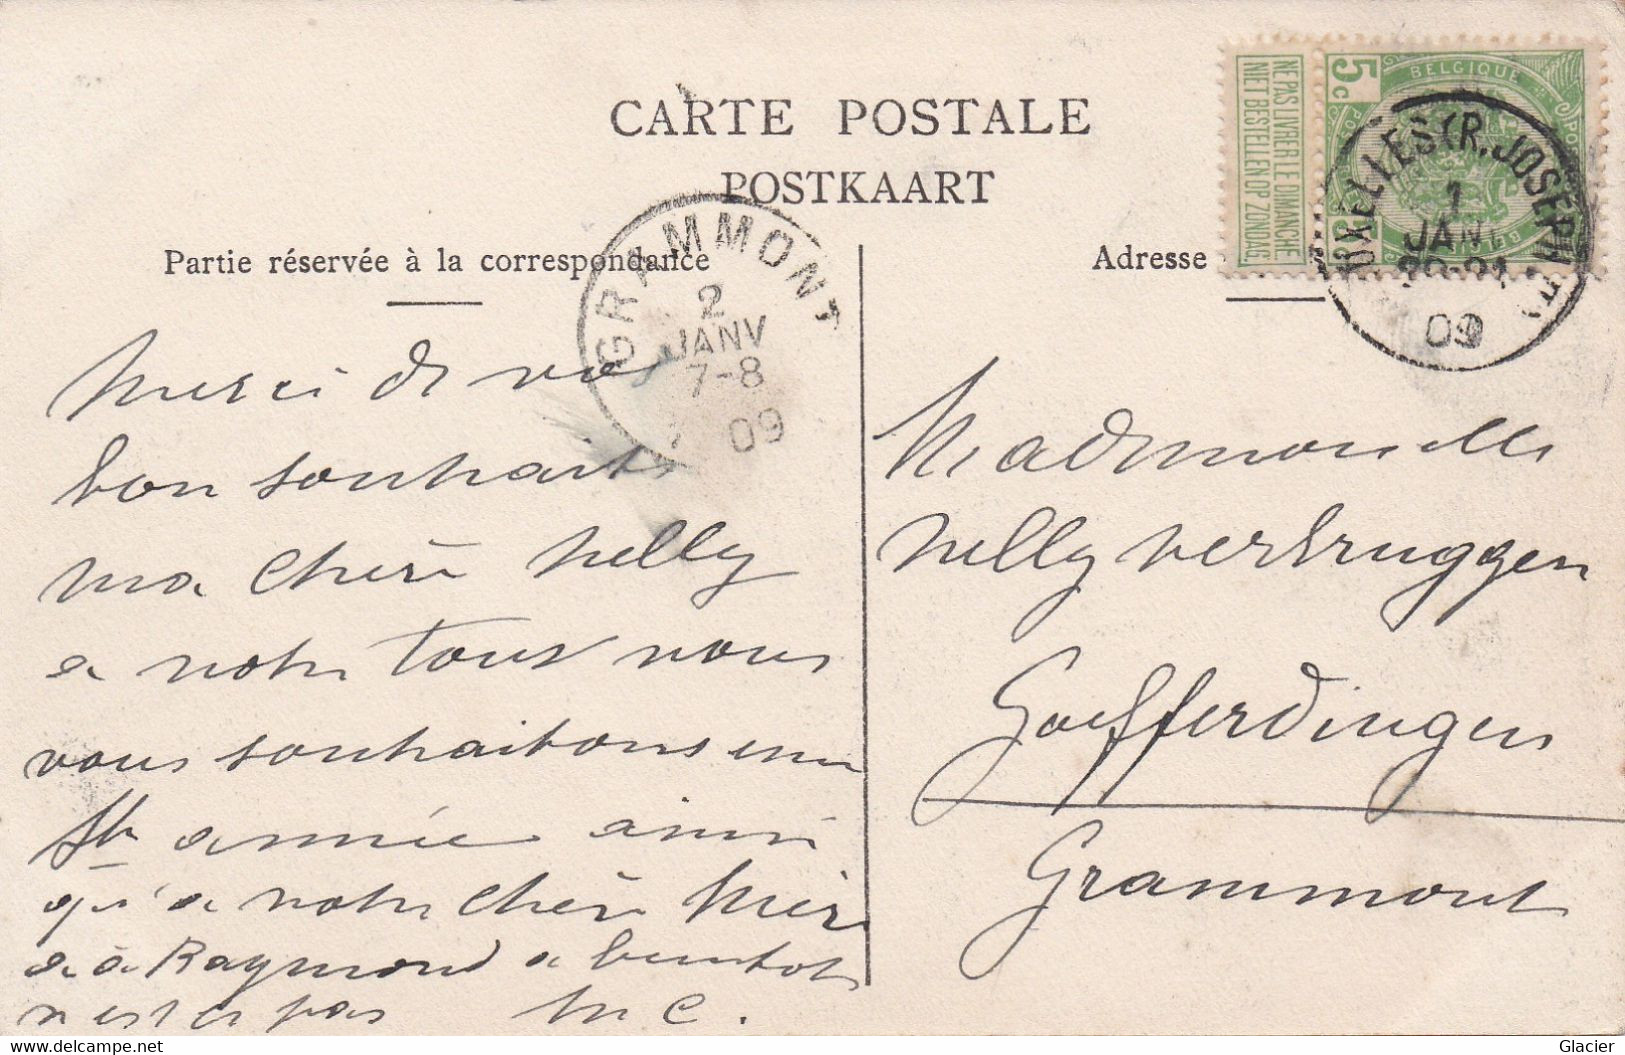 CARTE POSTALE
POSTKAART
Partie réservée à la correspondance
Adresse
NE PAS LIVRER LE DIMANCHE
NIET BESTELLEN OP ZONDAG.
5c
BELGIQUE
IXELLES (R. JOSEPH II)
1
JANV
20-21
09
GRAMMONT
2
JANV
7-8
09
Merci de vos
bon souhaits
ma chère Nelly
e notre tour nous
vous souhaitons une
Ste année ainsi
qu'a notre chère Mère
e à Raymond a bientot
n'est ce pas M C.
Mademoiselle
Nelly Verbruggen
Goefferdingen
Grammont
www.delcampe.net
Glacier